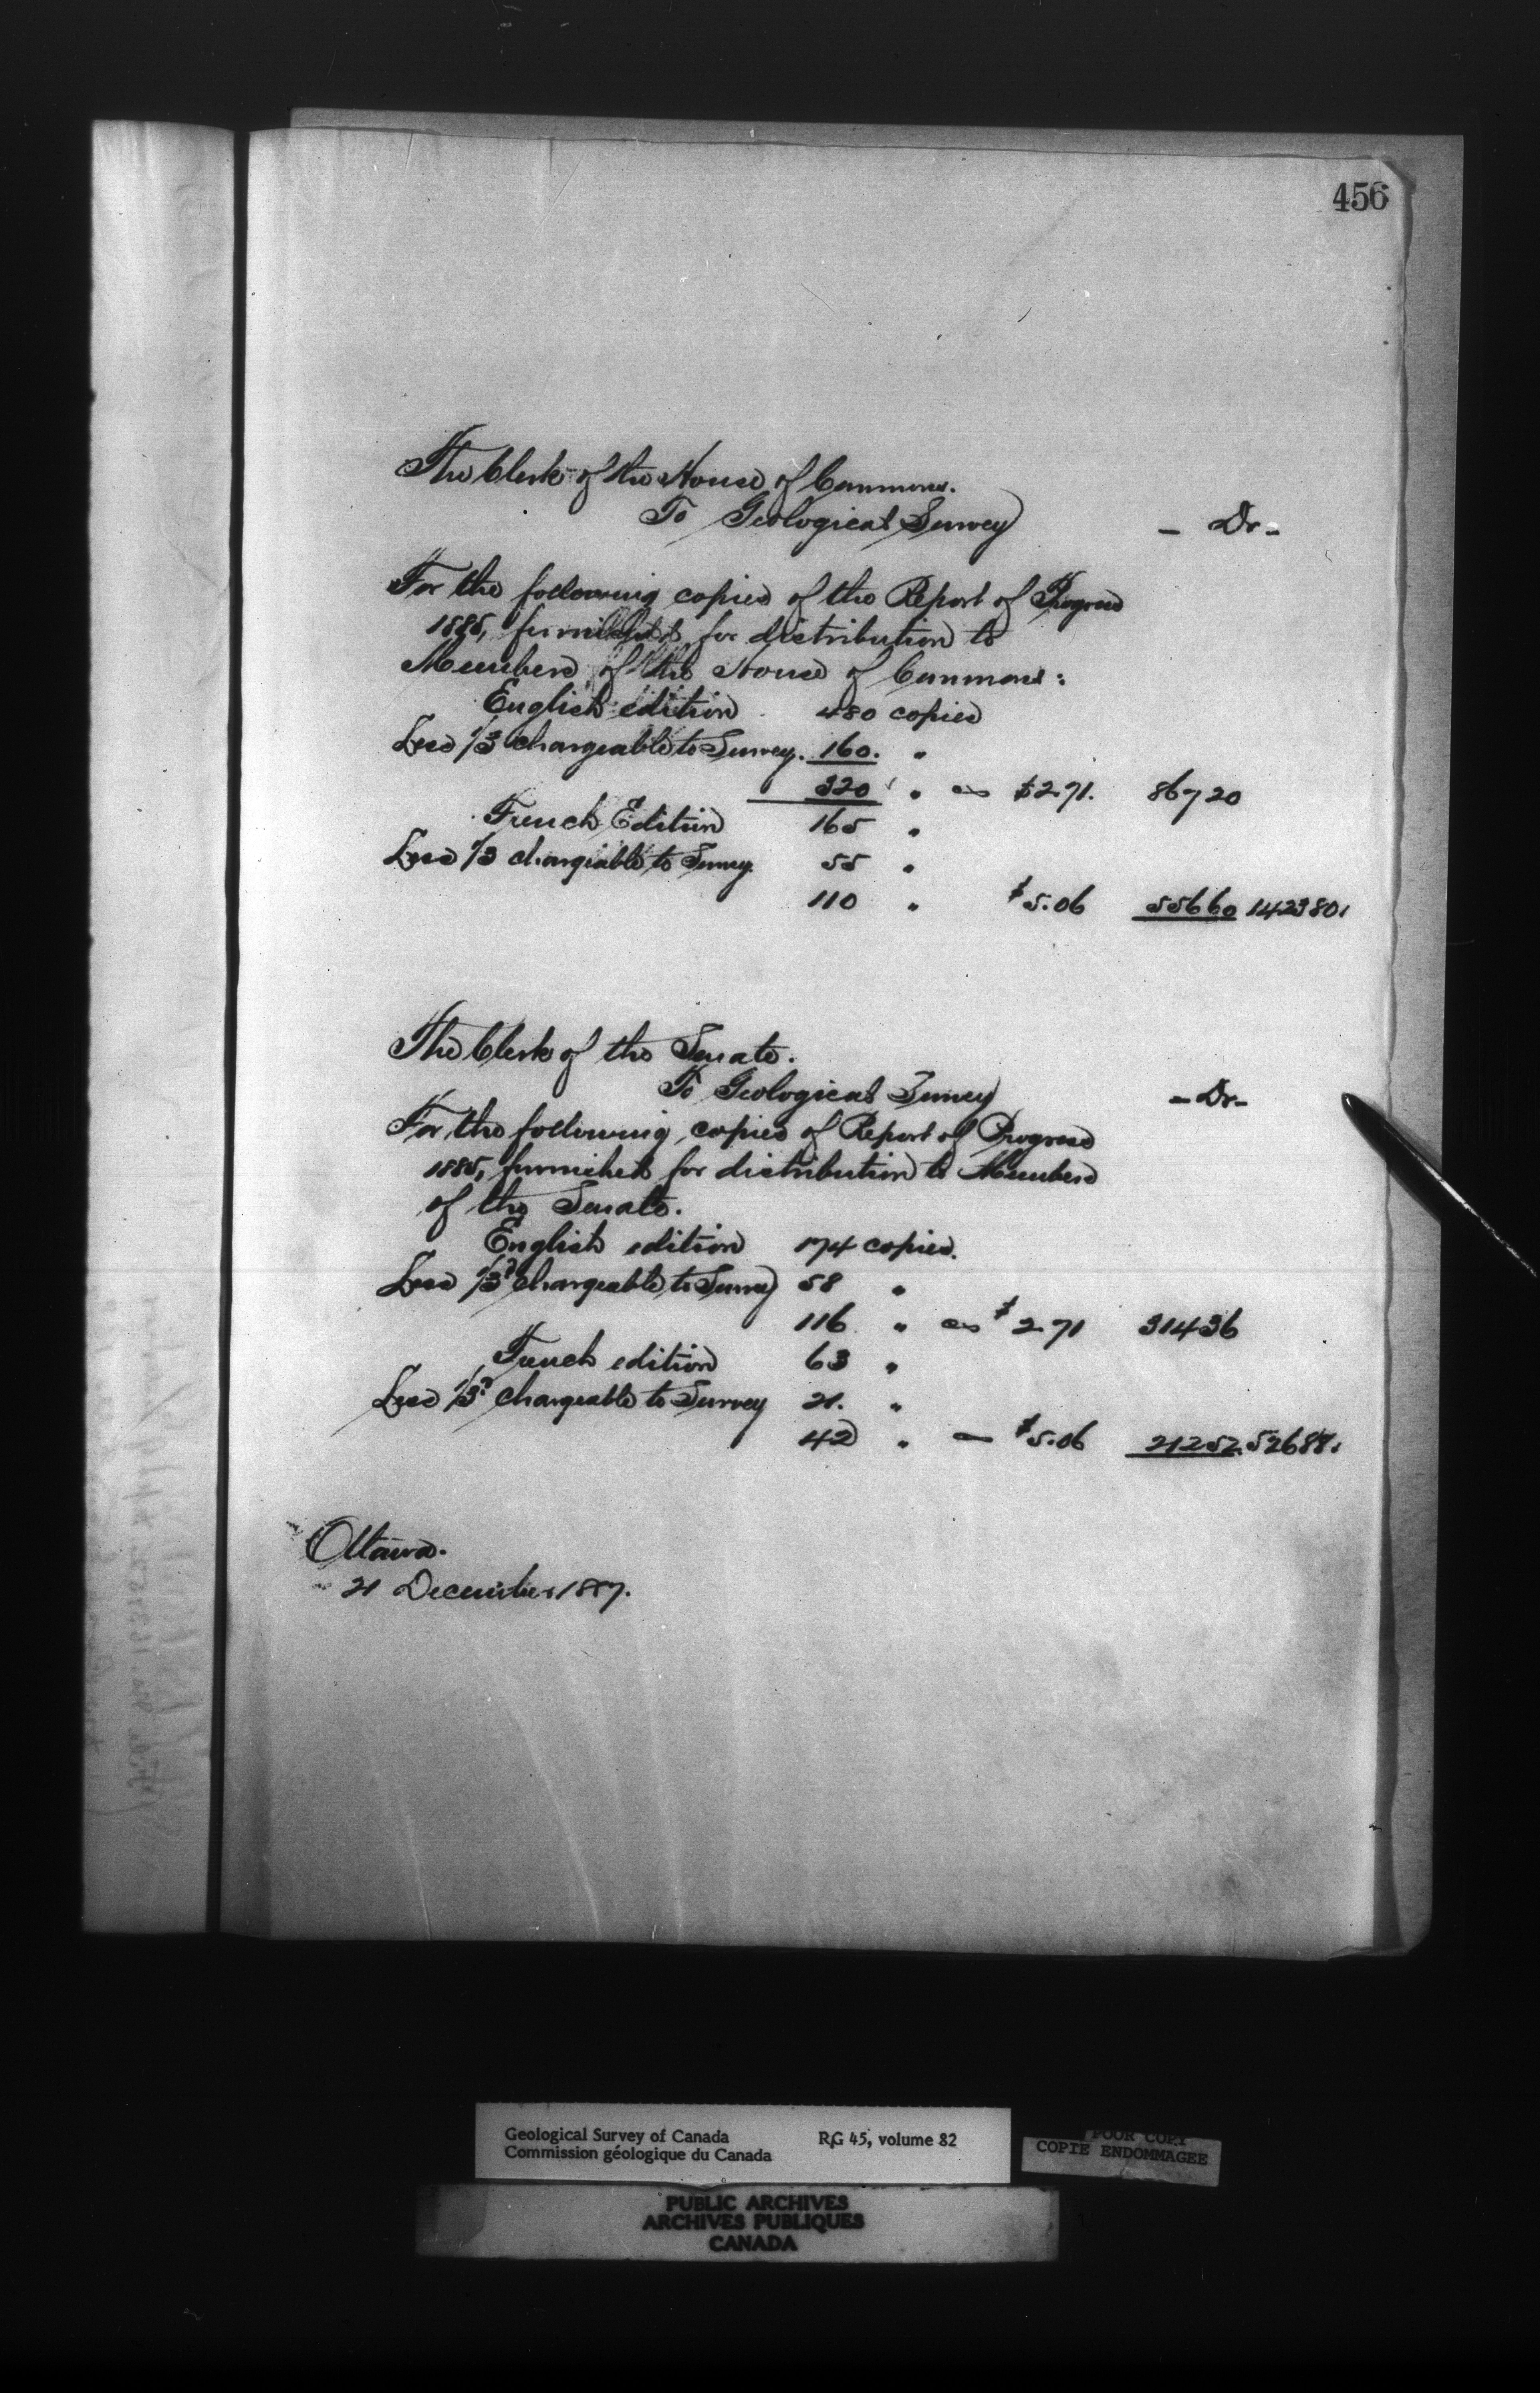 456
The Clerk of the House of Commons.
To Geological Survey - Dr -
For the following copies of the Report of Progress
1885, furnished for distribution to
Members of the House of Commons:
English edition 480 copies
Less 1/3 chargeable to Survey. 160. "
320 " @ $2.71. 867 20
French Edition 165 "
Less 1/3 chargeable to Survey. 55 "
110 " $5.06 556 60 1423 80.
The Clerk of the Senate.
To Geological Survey - Dr -
For the following copies of Report of Progress
1885, furnished for distribution to Members
of the Senate.
English edition 174 copies.
Less 1/3d chargeable to Survey 58 "
116 " @ $2.71 314 36
French edition 63 "
Less 1/3d chargeable to Survey 21. "
42 " — $5.06 212 52. 526 88.
Ottawa.
21 December 1887.
Geological Survey of Canada RG 45, volume 82
Commission géologique du Canada
POOR COPY
COPIE ENDOMMAGEE
PUBLIC ARCHIVES
ARCHIVES PUBLIQUES
CANADA